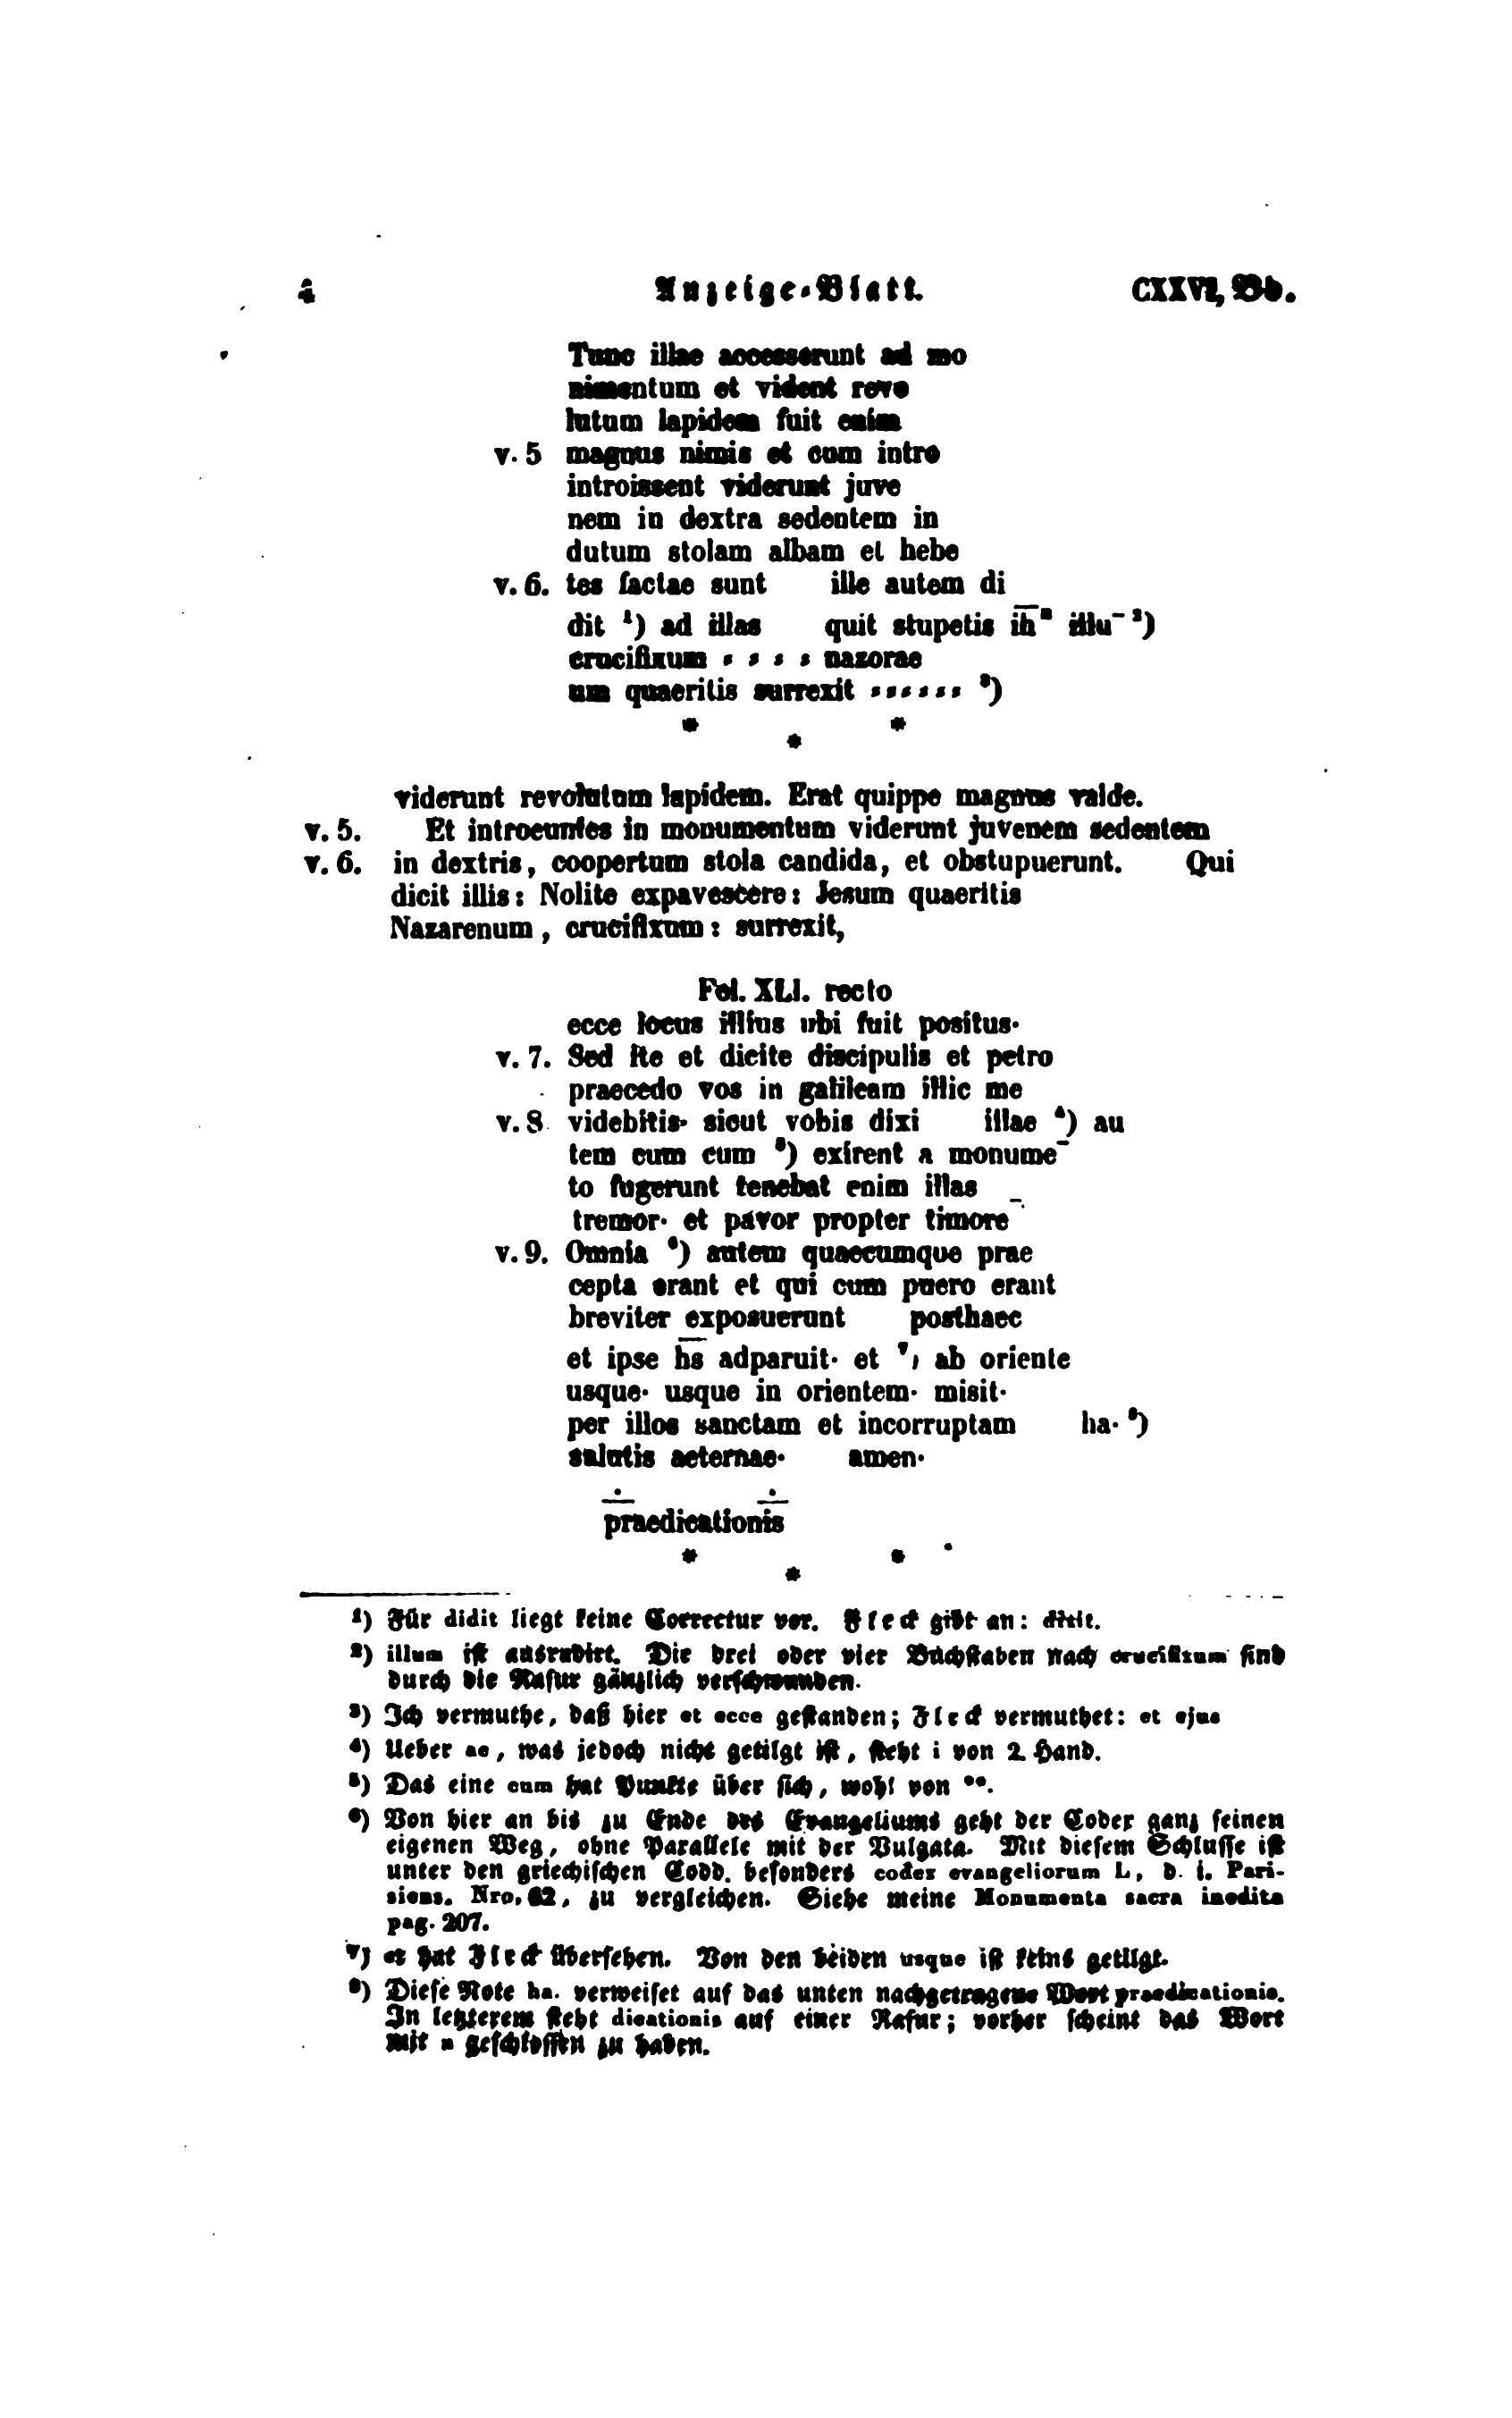 4 Anzeige-Blatt. CXXVI, Bd.
Tunc illae accesserunt ad mo
nimentum et vident revo
lutum lapidem fuit enim
v. 5 magnus nimis et cum intro
introissent viderunt juve
nem in dextra sedentem in
dutum stolam albam et hebe
v. 6. tes factae sunt ille autem di
dit ¹) ad illas quit stupetis ih̅ᵐ illu⁻ ²)
crucifixum ⸗ ⸗ ⸗ ⸗ nazorae
um quaeritis surrexit ⸗⸗⸗⸗⸗⸗ ³)
* * *
viderunt revolutum lapidem. Erat quippe magnus valde.
v. 5. Et introeuntes in monumentum viderunt juvenem sedentem
v. 6. in dextris, coopertum stola candida, et obstupuerunt. Qui
dicit illis: Nolite expavescere: Jesum quaeritis
Nazarenum, crucifixum: surrexit,
Fol. XLI. recto
ecce locus illius ubi fuit positus·
v. 7. Sed ite et dicite discipulis et petro
praecedo vos in galileam illic me
v. 8 videbitis· sicut vobis dixi illae ⁴) au
tem cum cum ⁵) exirent a monume⁻
to fugerunt tenebat enim illas
tremor· et pavor propter timore⁻
v. 9. Omnia ⁶) autem quaecumque prae
cepta erant et qui cum puero erant
breviter exposuerunt posthaec
et ipse h̅s̅ adparuit· et ⁷) ab oriente
usque· usque in orientem· misit·
per illos sanctam et incorruptam ha· ⁸)
salutis aeternae· amen·
praedicationis
* * *
¹) Für didit liegt keine Correctur vor. Fleck gibt an: dixit.
²) illum ist ausradirt. Die drei oder vier Buchstaben nach crucifixum sind
durch die Rasur gänzlich verschwunden.
³) Ich vermuthe, daß hier et ecce gestanden; Fleck vermuthet: et ejus
⁴) Ueber ae, was jedoch nicht getilgt ist, steht i von 2. Hand.
⁵) Das eine cum hat Punkte über sich, wohl von **.
⁶) Von hier an bis zu Ende des Evangeliums geht der Codex ganz seinen
eigenen Weg, ohne Parallele mit der Vulgata. Mit diesem Schlusse ist
unter den griechischen Codd. besonders codex evangeliorum L, d. i. Pari-
siens. Nro. 62, zu vergleichen. Siehe meine Monumenta sacra inedita
pag. 207.
⁷) et hat Fleck übersehen. Von den beiden usque ist keins getilgt.
⁸) Diese Note ha. verweiset auf das unten nachgetragene Wort praedicationis.
In letzterem steht dicationis auf einer Rasur; vorher scheint das Wort
mit n geschlossen zu haben.